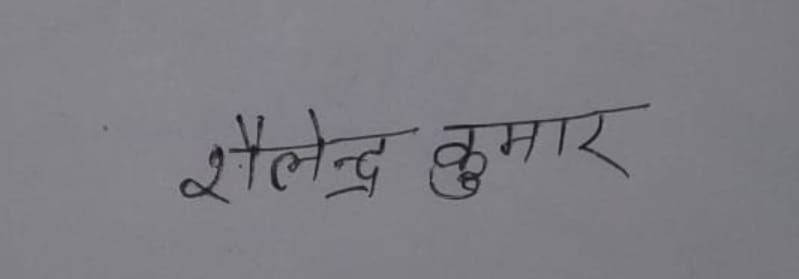 शैलेन्द्र कुमार